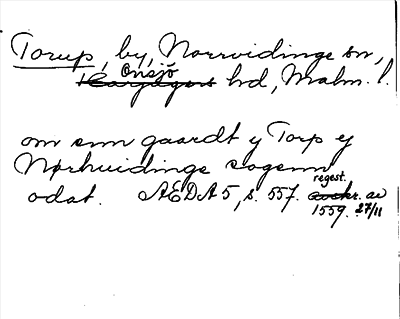 Torup, by, Norrvidinge sn,
Onsjö
Harjagers hd, Malm. l.
om smn gaardt y Torp ey
Nørhuidinge sogenn
odat. AEDA 5, s. 557. regest. av
1559. 27/11